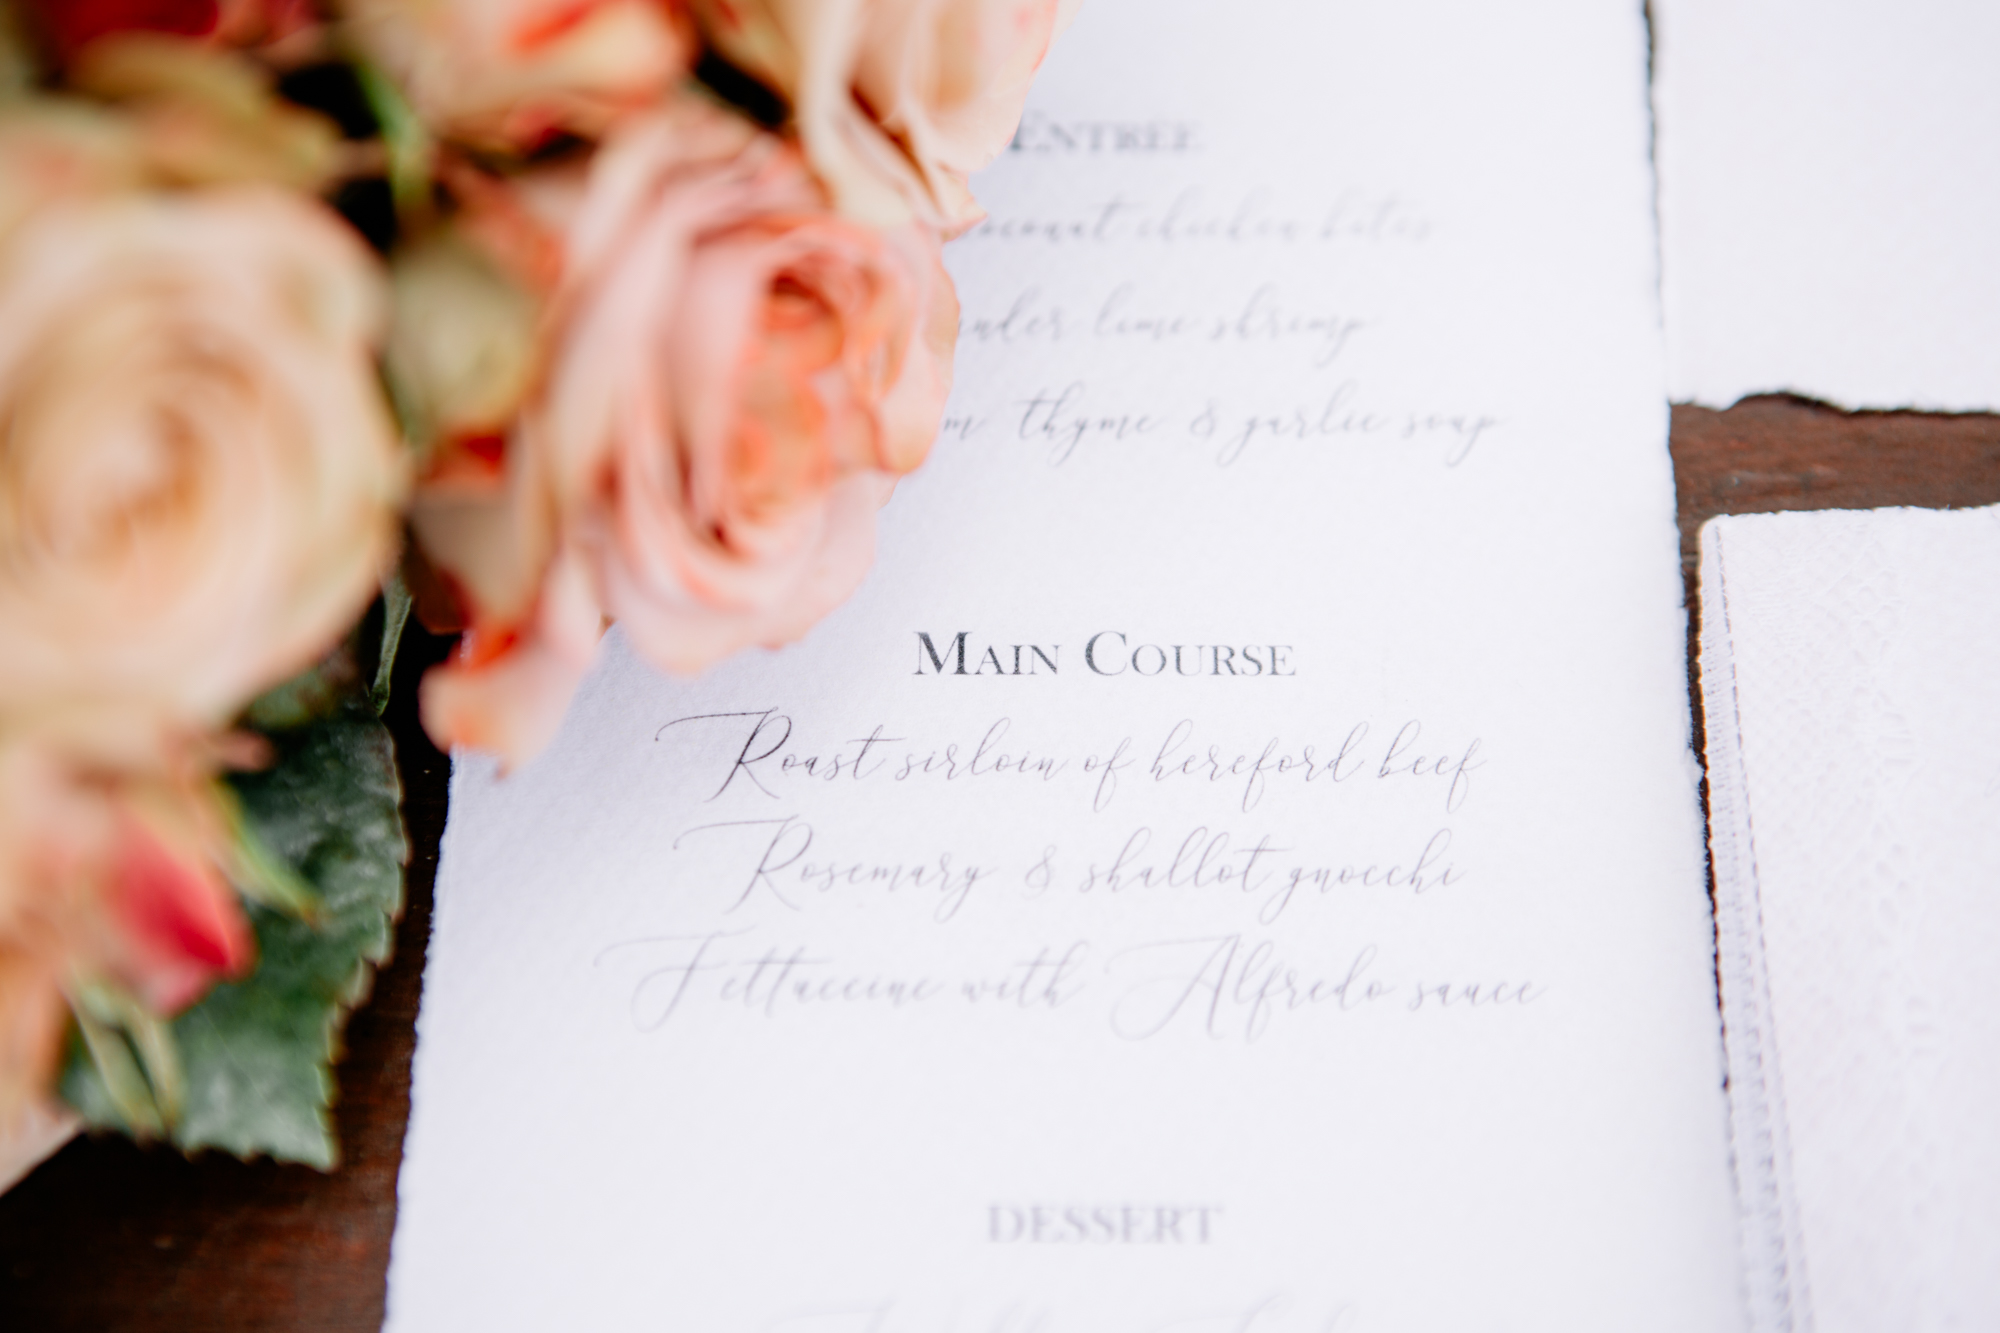 ENTREE
chicken bites
lime shrimp
thyme & garlic soup
MAIN COURSE
Roast sirloin of hereford beef
Rosemary & shallot gnocchi
Fettuccine with Alfredo sauce
DESSERT